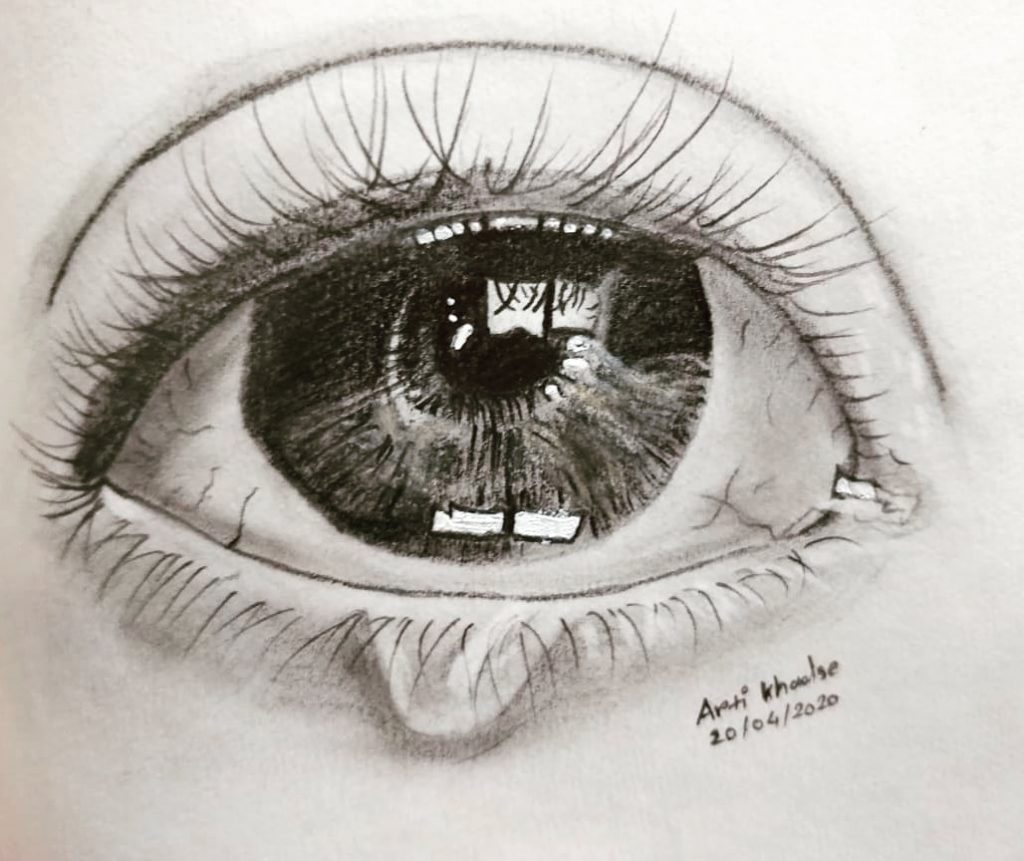 Arti Khodse
20/04/2020